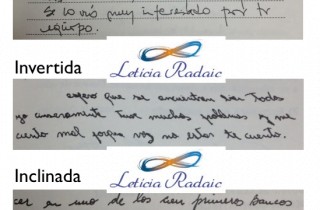 Se lo vió muy interesado por tu
equipo.
Letícia Radaic
Invertida
espero que se encuentren bien todos
yo
muchos problemas y me
siento mal porque voy no estas te cuento.
Letícia Radaic
Inclinada
cer en uno de los cien primeros bancos